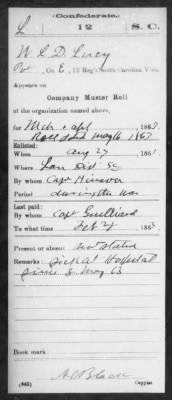 Confederate.
L 12 S.C.
W. C. D. Livcy
Pvt, Co. E, 12 Reg't South Carolina Vols.
Appears on
Company Muster Roll
of the organization named above,
for Mch & Apl 1863
Roll dated May 16 1863
Enlisted:
When Aug 27 1861
Where Lan Dist SC
By whom Capt Hinson
Period during the war
Last paid:
By whom Capt
To what time Feb 28 1863
Present or absent not stated
Remarks Sick at Hospital
since 8 May 63
Book mark
(642) A C Black Copyist.